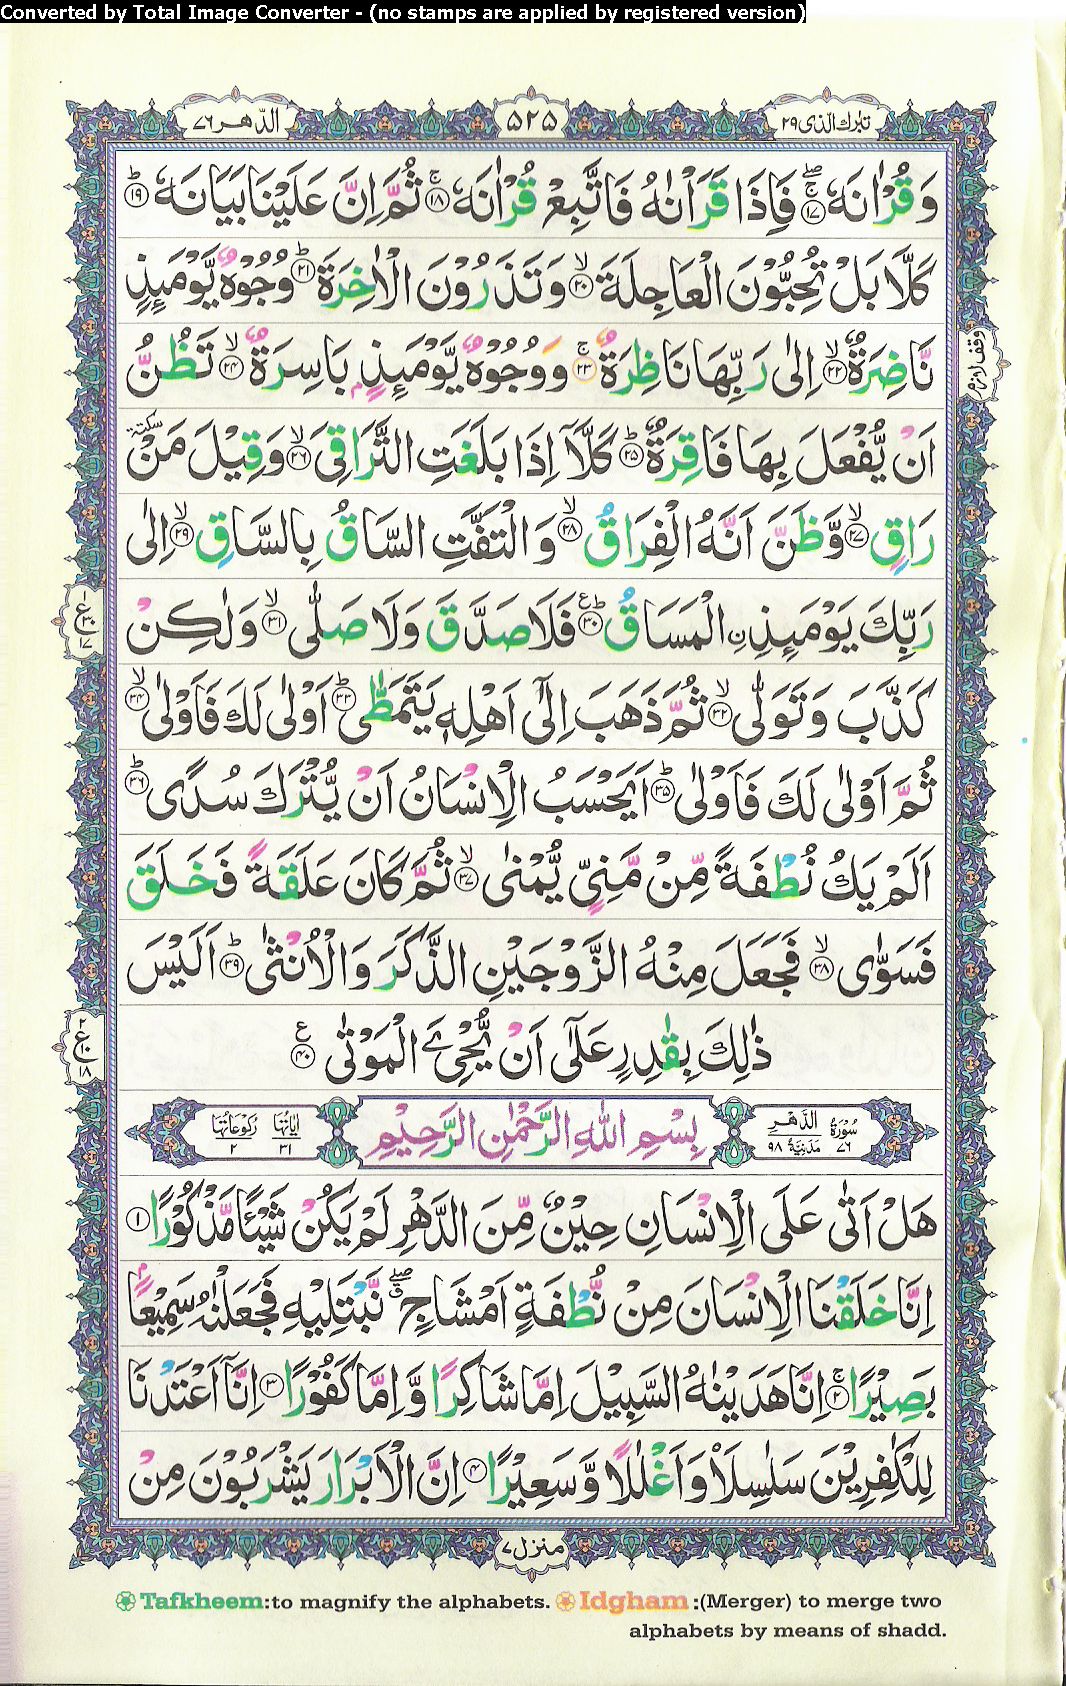 Converted by Total Image Converter - (no stamps are applied by registered version)
تبٰرك الذی ۲۹
۵۲۵
الدّهر ۷۶
وَقُرْاٰنَهٗ ۚۖ ۱۷ فَاِذَا قَرَاْنٰهُ فَاتَّبِعْ قُرْاٰنَهٗ ۚ ۱۸ ثُمَّ اِنَّ عَلَيْنَا بَيَانَهٗ ؕ ۱۹
كَلَّا بَلْ تُحِبُّوْنَ الْعَاجِلَةَ ۙ ۲۰ وَتَذَرُوْنَ الْاٰخِرَةَ ؕ ۲۱ وُجُوْهٌ يَّوْمَئِذٍ
نَّاضِرَةٌ ۙ ۲۲ اِلٰى رَبِّهَا نَاظِرَةٌ ۚ ۲۳ وَوُجُوْهٌ يَّوْمَئِذٍۭ بَاسِرَةٌ ۙ ۲۴ تَظُنُّ
وقف لازم
اَنْ يُّفْعَلَ بِهَا فَاقِرَةٌ ؕ ۲۵ كَلَّاۤ اِذَا بَلَغَتِ التَّرَاقِیَ ۙ ۲۶ وَقِيْلَ مَنْ سكتة
رَاقٍ ۙ ۲۷ وَّظَنَّ اَنَّهُ الْفِرَاقُ ۙ ۲۸ وَالْتَفَّتِ السَّاقُ بِالسَّاقِ ۙ ۲۹ اِلٰى
رَبِّكَ يَوْمَئِذِ ِۨالْمَسَاقُ ؕ ع ۳۰ فَلَا صَدَّقَ وَلَا صَلّٰى ۙ ۳۱ وَلٰكِنْ
۱ ع ۳۰ ۱۷
كَذَّبَ وَتَوَلّٰى ۙ ۳۲ ثُمَّ ذَهَبَ اِلٰۤى اَهْلِهٖ يَتَمَطّٰى ؕ ۳۳ اَوْلٰى لَكَ فَاَوْلٰى ۙ ۳۴
ثُمَّ اَوْلٰى لَكَ فَاَوْلٰى ؕ ۳۵ اَيَحْسَبُ الْاِنْسَانُ اَنْ يُّتْرَكَ سُدًى ؕ ۳۶
اَلَمْ يَكُ نُطْفَةً مِّنْ مَّنِیٍّ يُّمْنٰى ۙ ۳۷ ثُمَّ كَانَ عَلَقَةً فَخَلَقَ
فَسَوّٰى ۙ ۳۸ فَجَعَلَ مِنْهُ الزَّوْجَيْنِ الذَّكَرَ وَالْاُنْثٰى ؕ ۳۹ اَلَيْسَ
ذٰلِكَ بِقٰدِرٍ عَلٰۤى اَنْ يُّحْیِۦَ الْمَوْتٰى ع ۴۰
۲ ع ۱۰ ۱۸
سُوْرَةُ ۷۶ الدَّهْرِ مَدَنِيَّةٌ ۹۸
بِسْمِ اللّٰهِ الرَّحْمٰنِ الرَّحِيْمِ
اٰيَاتُهَا ۳۱ رُكُوْعَاتُهَا ۲
هَلْ اَتٰى عَلَى الْاِنْسَانِ حِيْنٌ مِّنَ الدَّهْرِ لَمْ يَكُنْ شَيْـًٔا مَّذْكُوْرًا ۱
اِنَّا خَلَقْنَا الْاِنْسَانَ مِنْ نُّطْفَةٍ اَمْشَاجٍ ۖق نَّبْتَلِيْهِ فَجَعَلْنٰهُ سَمِيْعًاۢ
بَصِيْرًا ۚ ۲ اِنَّا هَدَيْنٰهُ السَّبِيْلَ اِمَّا شَاكِرًا وَّاِمَّا كَفُوْرًا ۳ اِنَّاۤ اَعْتَدْنَا
لِلْكٰفِرِيْنَ سَلٰسِلَا۟ وَاَغْلٰلًا وَّسَعِيْرًا ۴ اِنَّ الْاَبْرَارَ يَشْرَبُوْنَ مِنْ
منزل ۷
Tafkheem:to magnify the alphabets. Idgham :(Merger) to merge two
alphabets by means of shadd.